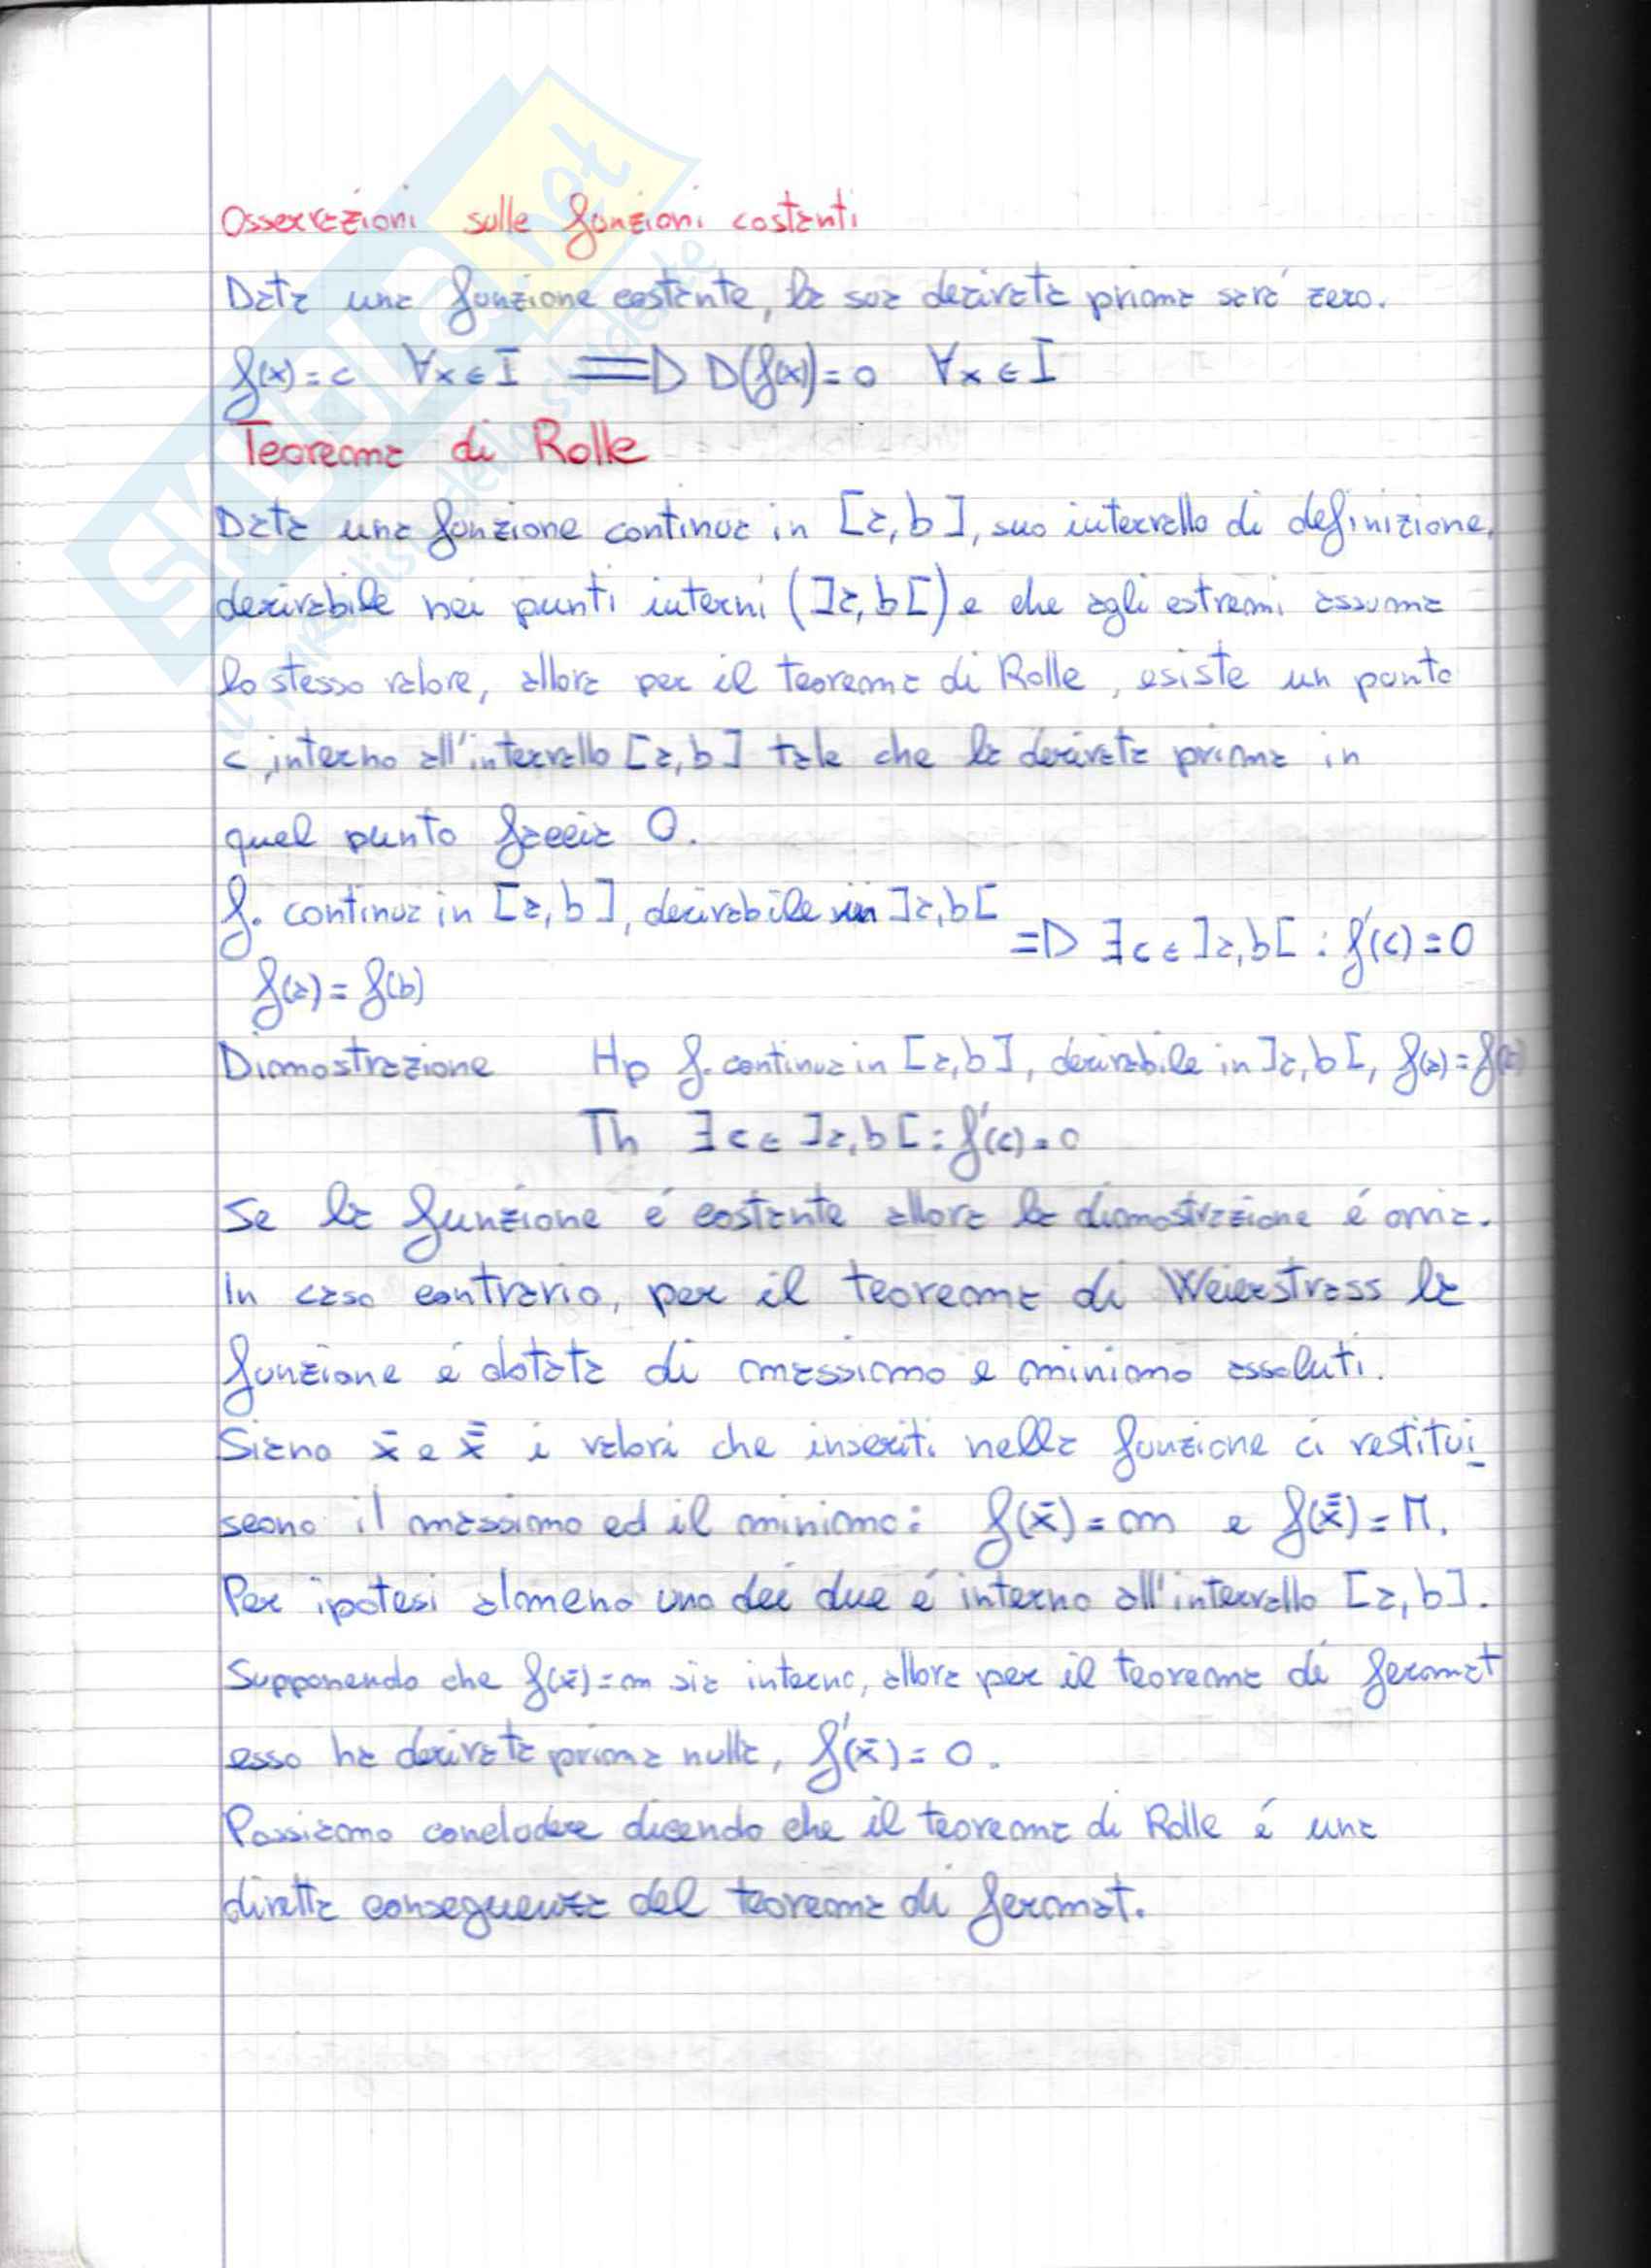 Osservazioni sulle funzioni costanti
Data una funzione costante, la sua derivata prima sará zero.
f(x) = c ∀x ∈ I ⟹ D(f(x)) = 0 ∀x ∈ I
Teorema di Rolle
Data una funzione continua in [a, b], suo intervallo di definizione,
derivabile nei punti interni (]a, b[) e che agli estremi assuma
lo stesso valore, allora per il teorema di Rolle, esiste un punto
c, interno all'intervallo [a, b] tale che la derivata prima in
quel punto faccia 0.
f. continua in [a, b], derivabile in ]a, b[
f(a) = f(b)
⟹ ∃ c ∈ ]a, b[ : f'(c) = 0
Dimostrazione Hp f. continua in [a, b], derivabile in ]a, b[, f(a) = f(b)
Th ∃ c ∈ ]a, b[ : f'(c) = 0
Se la funzione é costante allora la dimostrazione é ovvia.
In caso contrario, per il teorema di Weierstrass la
funzione é dotata di massimo e minimo assoluti.
Siano x̄ e x̿ i valori che inseriti nella funzione ci restitui
scono il massimo ed il minimo: f(x̄) = m e f(x̿) = M.
Per ipotesi almeno uno dei due é interno all'intervallo [a, b].
Supponendo che f(x̄) = m sia interno, allora per il teorema di fermat
esso ha derivata prima nulla, f'(x̄) = 0.
Possiamo concludere dicendo che il teorema di Rolle é una
diretta conseguenza del teorema di fermat.
SKUOLA.net
il paradiso dello studente